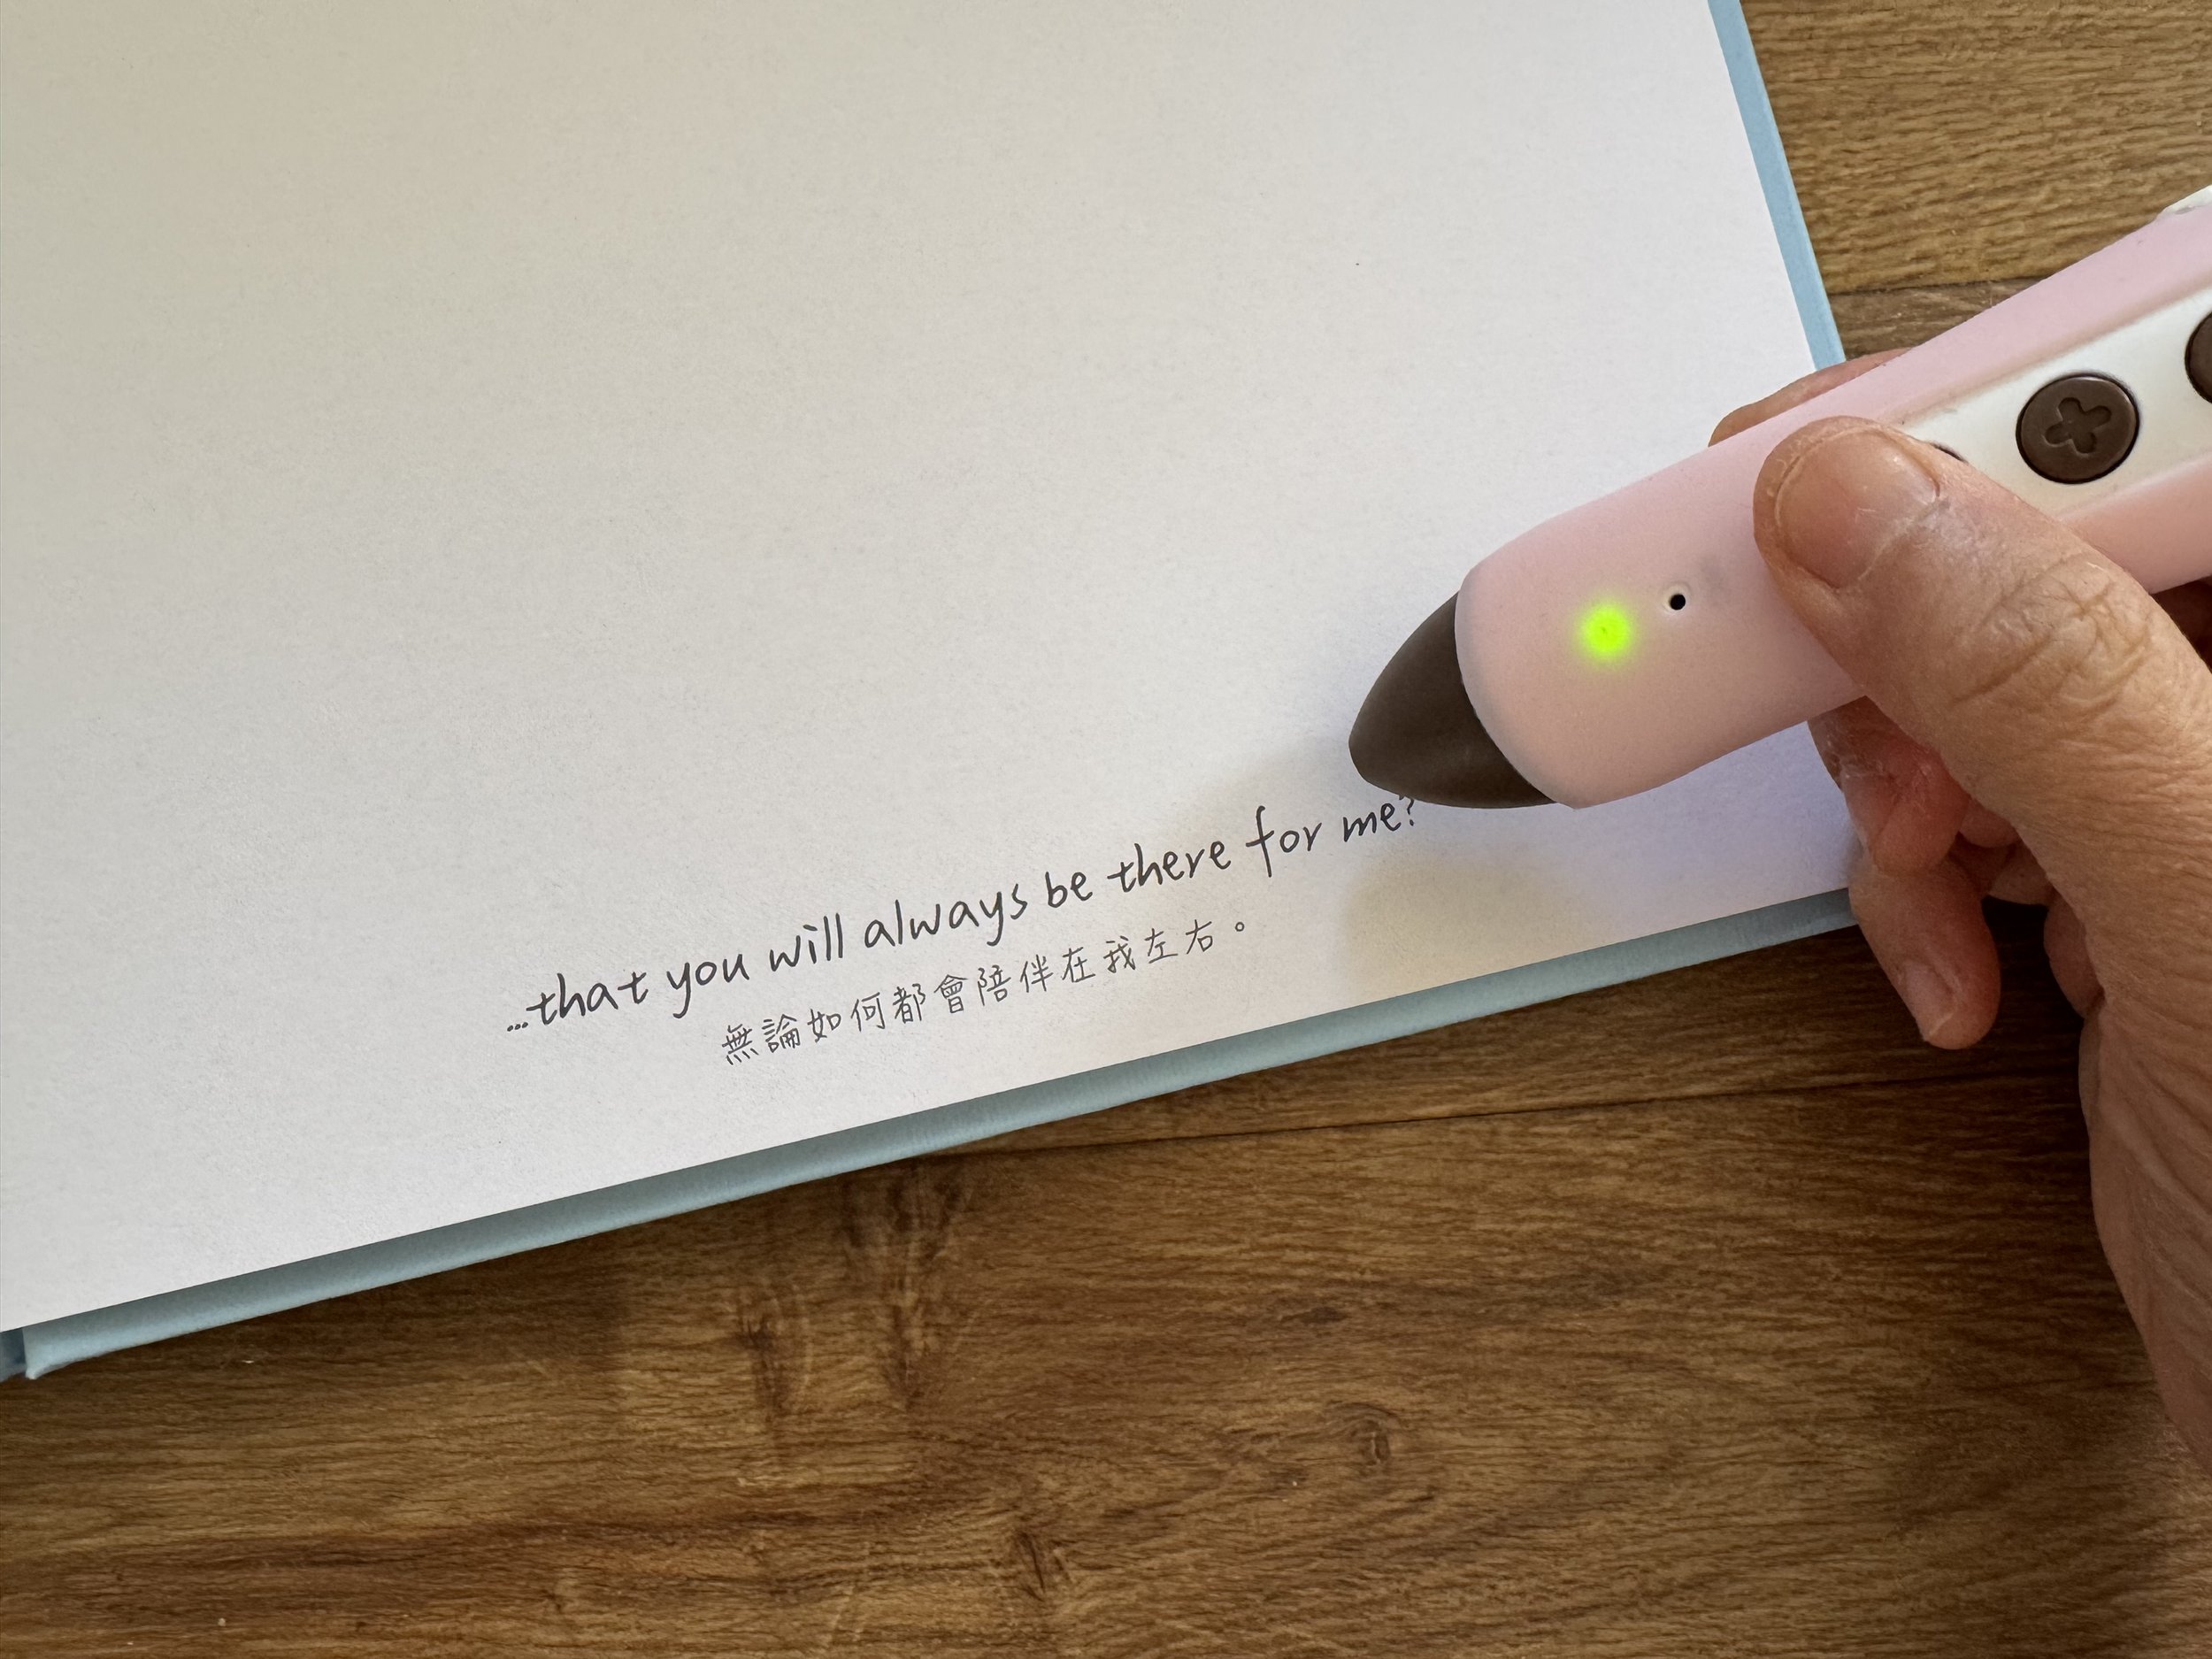 ...that you will always be there for me?
無論如何都會陪伴在我左右。